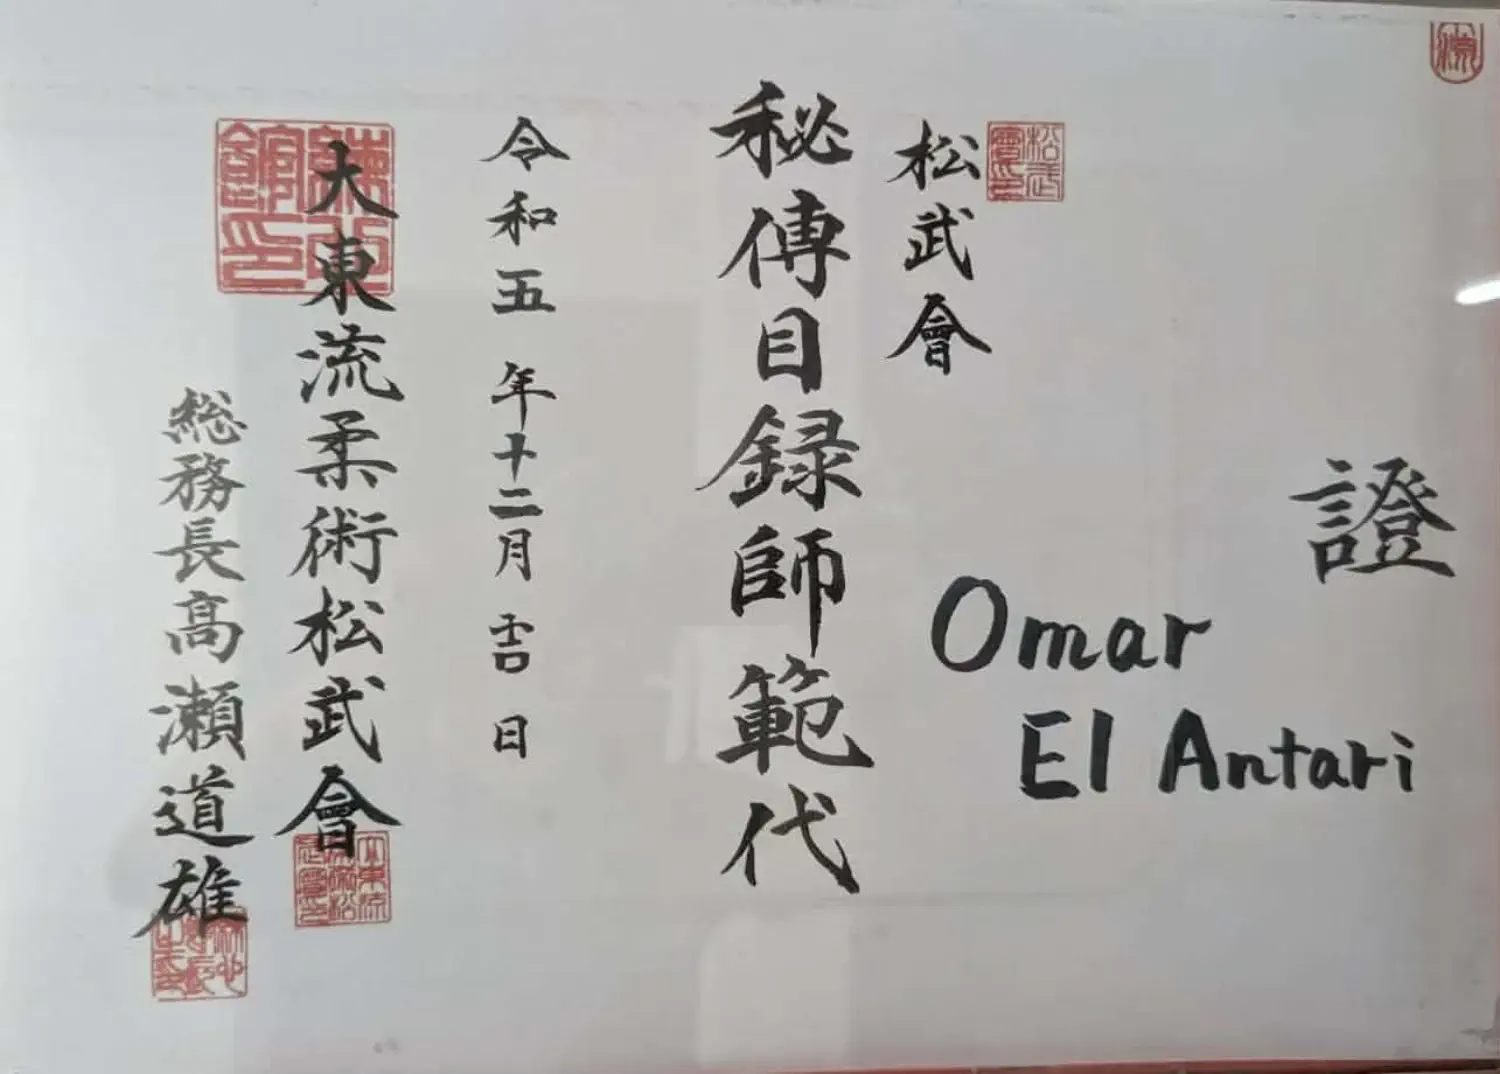 證
Omar
El Antari
松武會
秘傳目録師範代
令和五年十二月吉日
大東流柔術松武會
総務長高瀬道雄